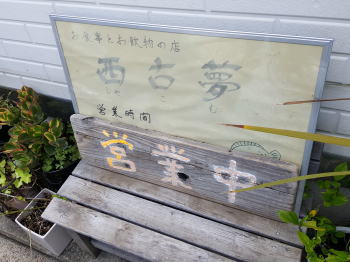 お食事とお飲物の店
西古夢
営業時間
営業中